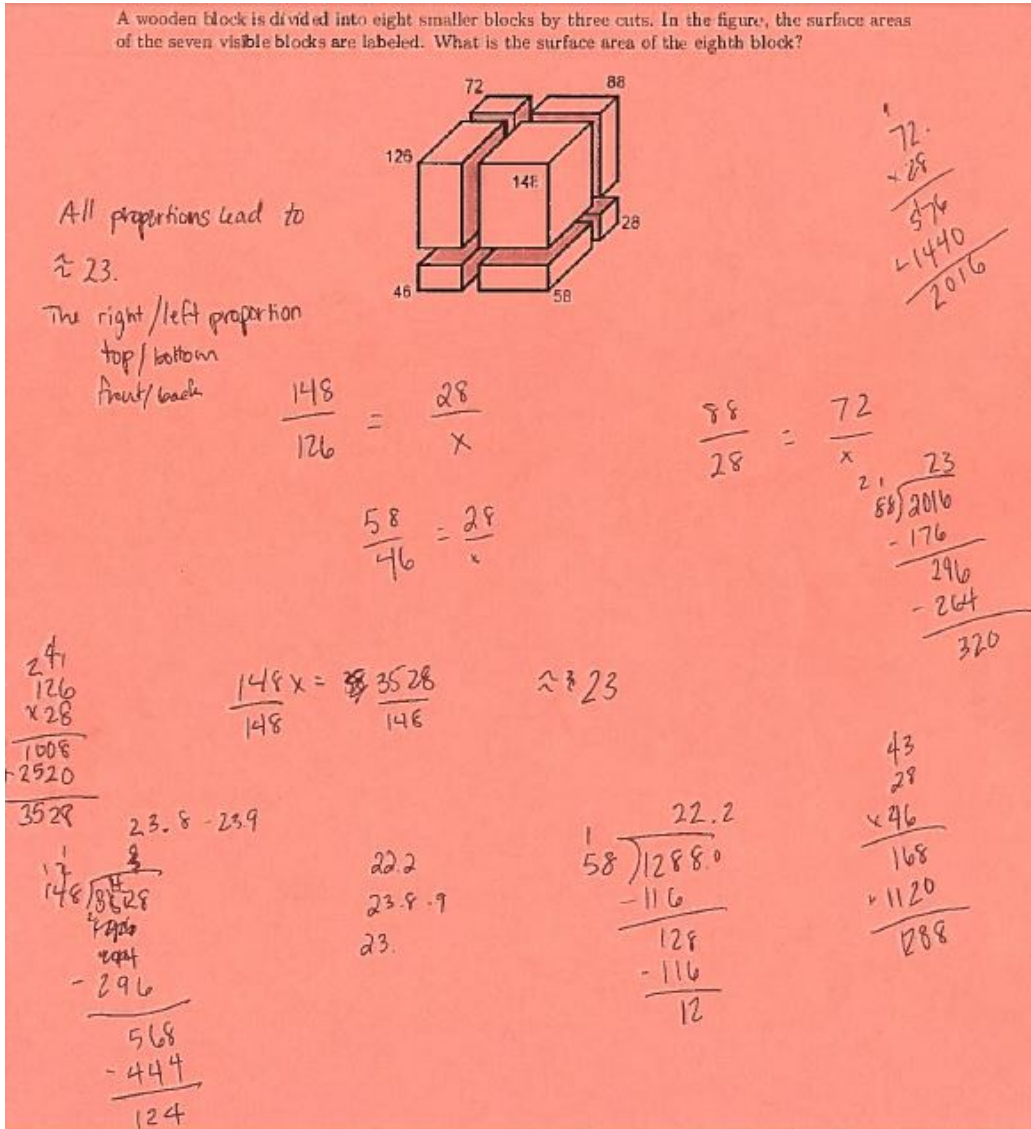 A wooden block is divided into eight smaller blocks by three cuts. In the figure, the surface areas
of the seven visible blocks are labeled. What is the surface area of the eighth block?
72
88
126
148
28
46
58
All proportions lead to
≈ 23.
The right/left proportion
top/bottom
front/back
72.
x 28
576
+1440
2016
148/126 = 28/x
88/28 = 72/x
58/46 = 28/x
23
88)2016
- 176
296
- 264
320
126
x28
1008
+2520
3528
148x/148 = 3528/148
≈ 23
23.8 - 23.9
- 296
568
- 444
124
22.2
23.8-.9
23.
22.2
58)1288.0
- 116
128
- 116
12
43
28
x46
168
+1120
1288